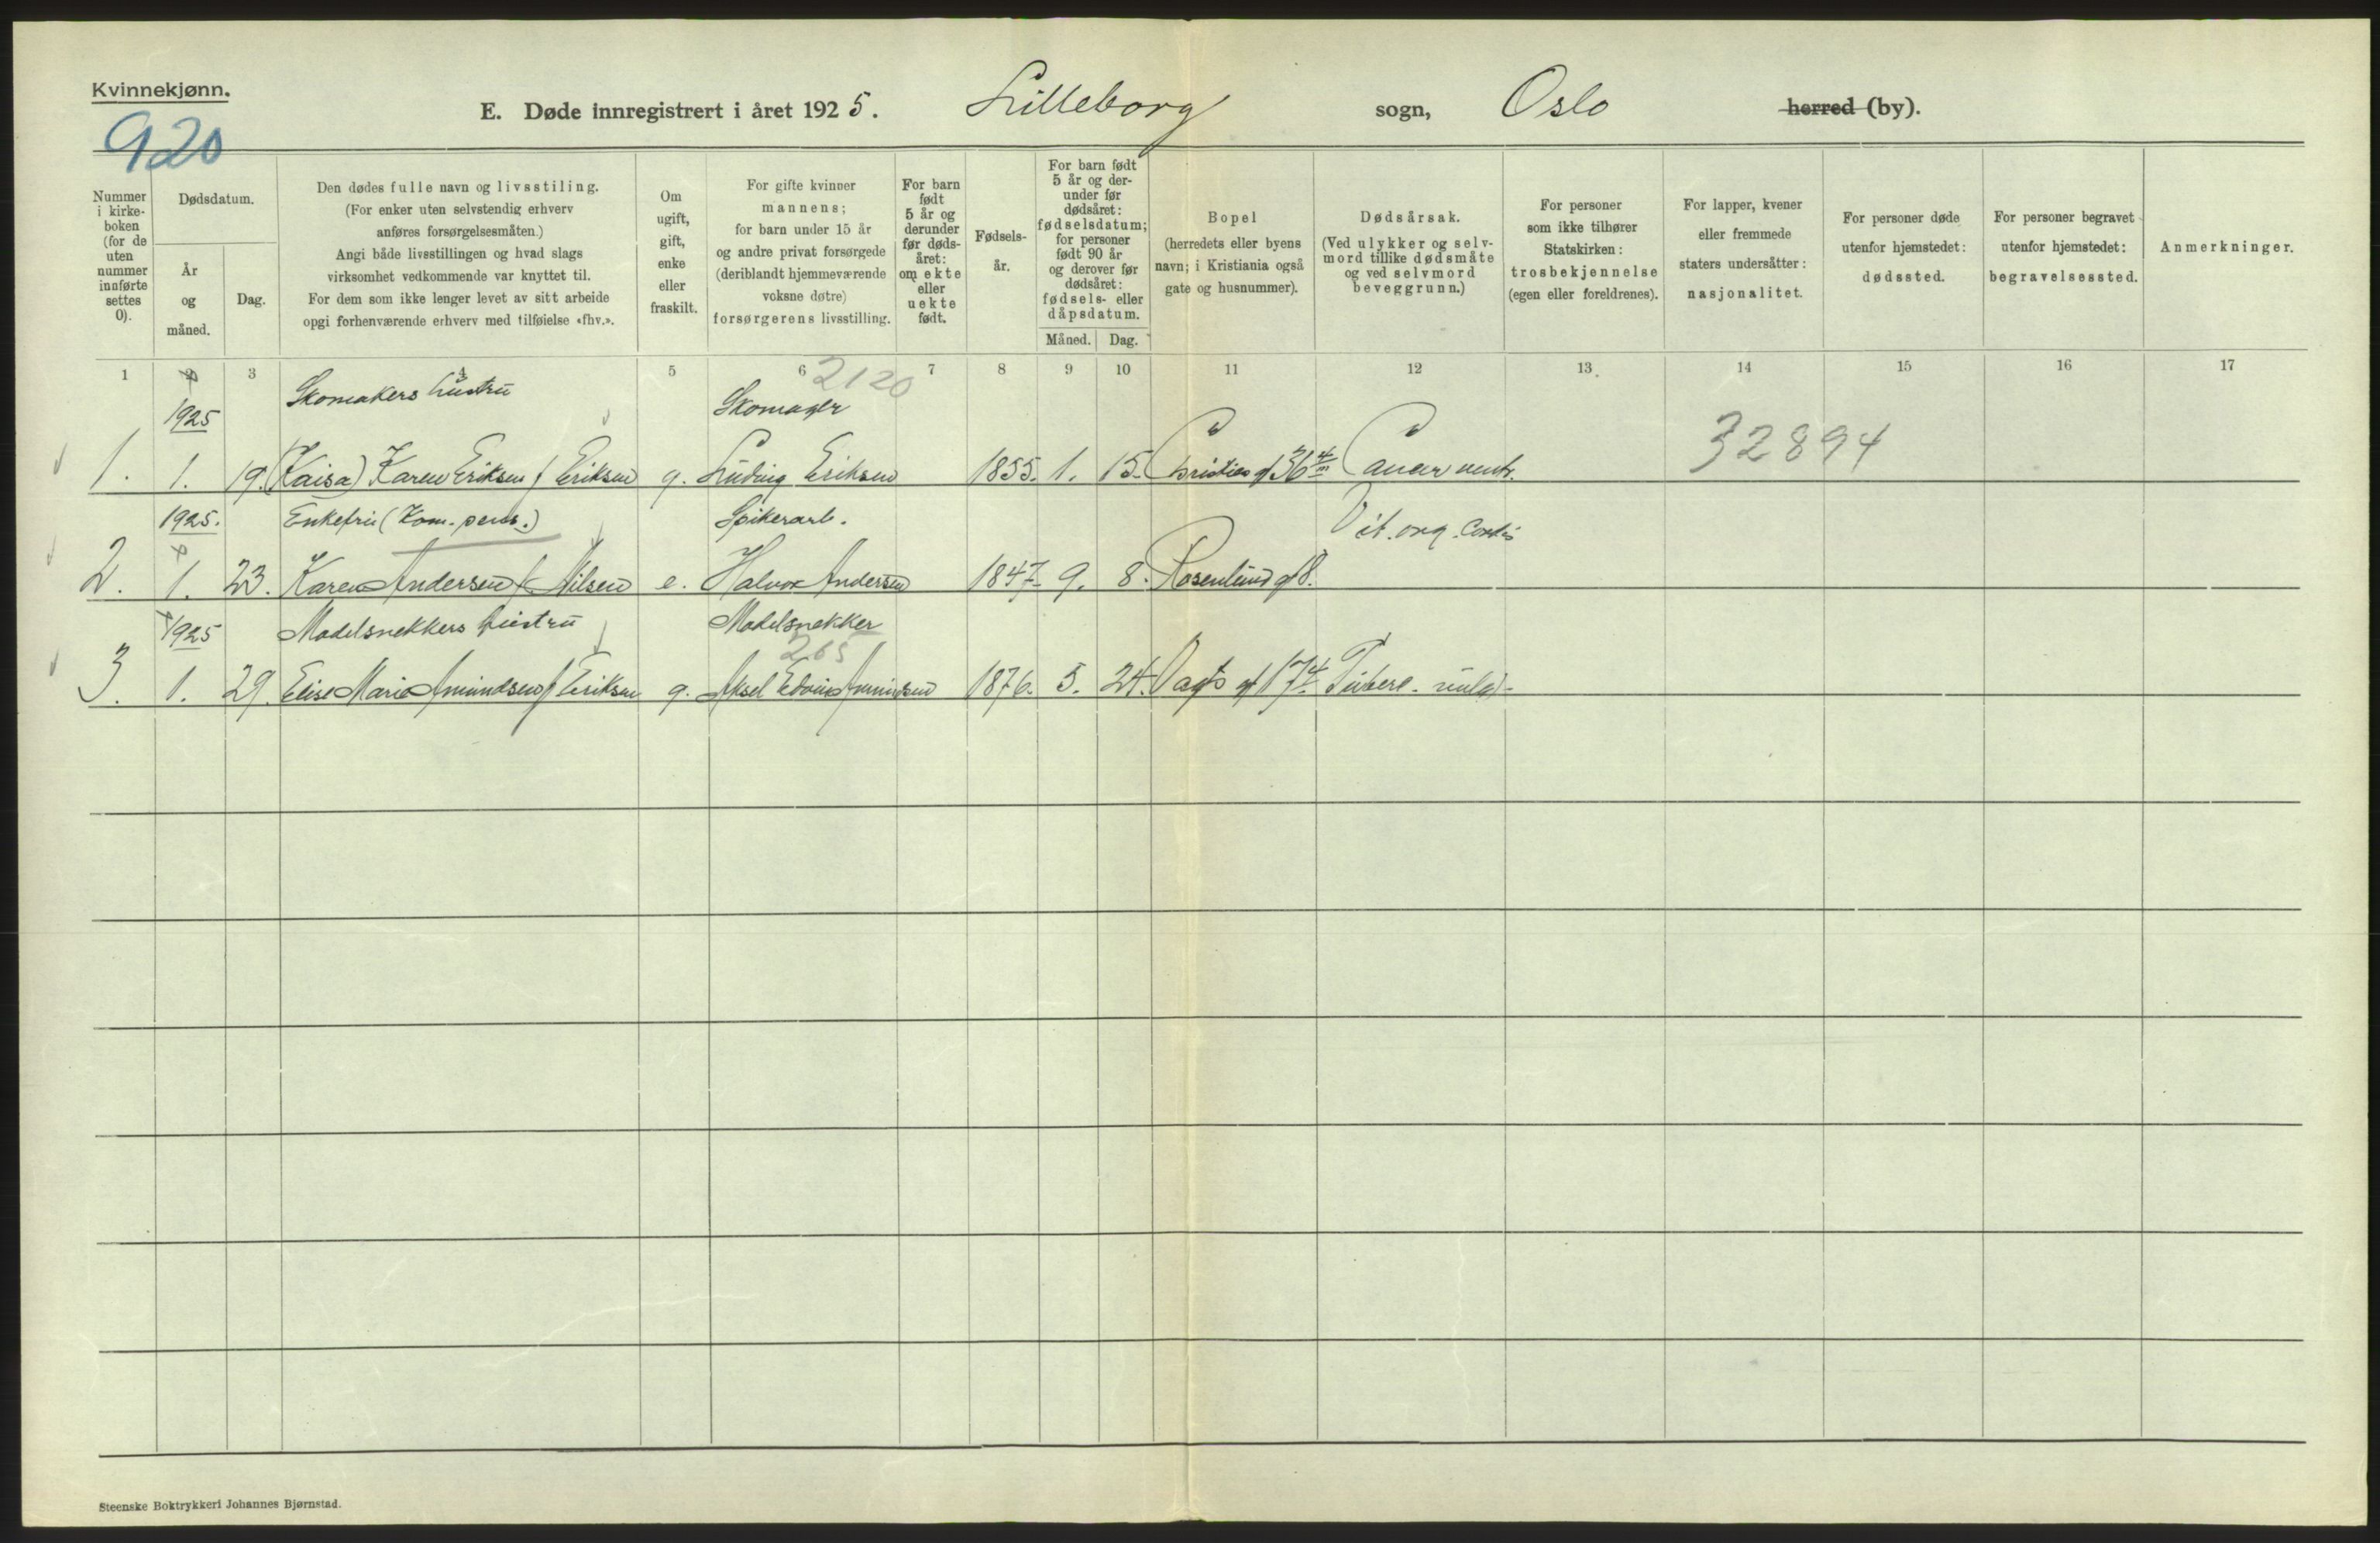 Kvinnekjønn.
920
E. Døde innregistrert i året 1925. Lilleborg sogn, Oslo herred (by).
Nummer i kirkeboken (for de uten nummer innførte settes 0).
Dødsdatum.
År og måned.
Dag.
Den dødes fulle navn og livsstiling.
(For enker uten selvstendig erhverv
anføres forsørgelsesmåten.)
Angi både livsstillingen og hvad slags
virksomhet vedkommende var knyttet til.
For dem som ikke lenger levet av sitt arbeide
opgi forhenværende erhverv med tilføielse «fhv.».
Om ugift, gift, enke eller fraskilt.
For gifte kvinner
mannens;
for barn under 15 år
og andre privat forsørgede
(deriblandt hjemmeværende
voksne døtre)
forsørgerens livsstilling.
For barn født 5 år og derunder før dødsåret: om ekte eller uekte født.
Fødselsår.
For barn født 5 år og derunder før dødsåret: fødselsdatum; for personer født 90 år og derover før dødsåret: fødsels- eller dåpsdatum.
Måned. Dag.
Bopel
(herredets eller byens
navn; i Kristiania også
gate og husnummer).
Dødsårsak.
(Ved ulykker og selv-
mord tillike dødsmåte
og ved selvmord
beveggrunn.)
For personer
som ikke tilhører
Statskirken:
trosbekjennelse
(egen eller foreldrenes).
For lapper, kvener
eller fremmede
staters undersåtter:
nasjonalitet.
For personer døde
utenfor hjemstedet:
dødssted.
For personer begravet
utenfor hjemstedet:
begravelsessted.
Anmerkninger.
1 2 3 4 5 6 7 8 9 10 11 12 13 14 15 16 17
2120
1925 Skomakers hustru Skomager
1. 1. 19. (Kaisa) Karen Eriksen f Eriksen g. Ludvig Eriksen 1855. 1. 15. Christies gt 36 4/m Cancer ventr.
32894
1925. Enkefru (Kom. pens.) Spikerarb. Vit. org. Cordis
2. 1. 23. Karen Andersen f. Nilsen e. Halvor Andersen 1847. 9. 8. Rosenlund gt 8.
1925 Modelsnekkers hustru Modelsnekker
265
3. 1. 29. Elise Marie Amundsen f Eriksen g. Aksel Edvin Amundsen 1876. 5. 24. Vogts gt 17 4. Tuberc.
Steenske Boktrykkeri Johannes Bjørnstad.